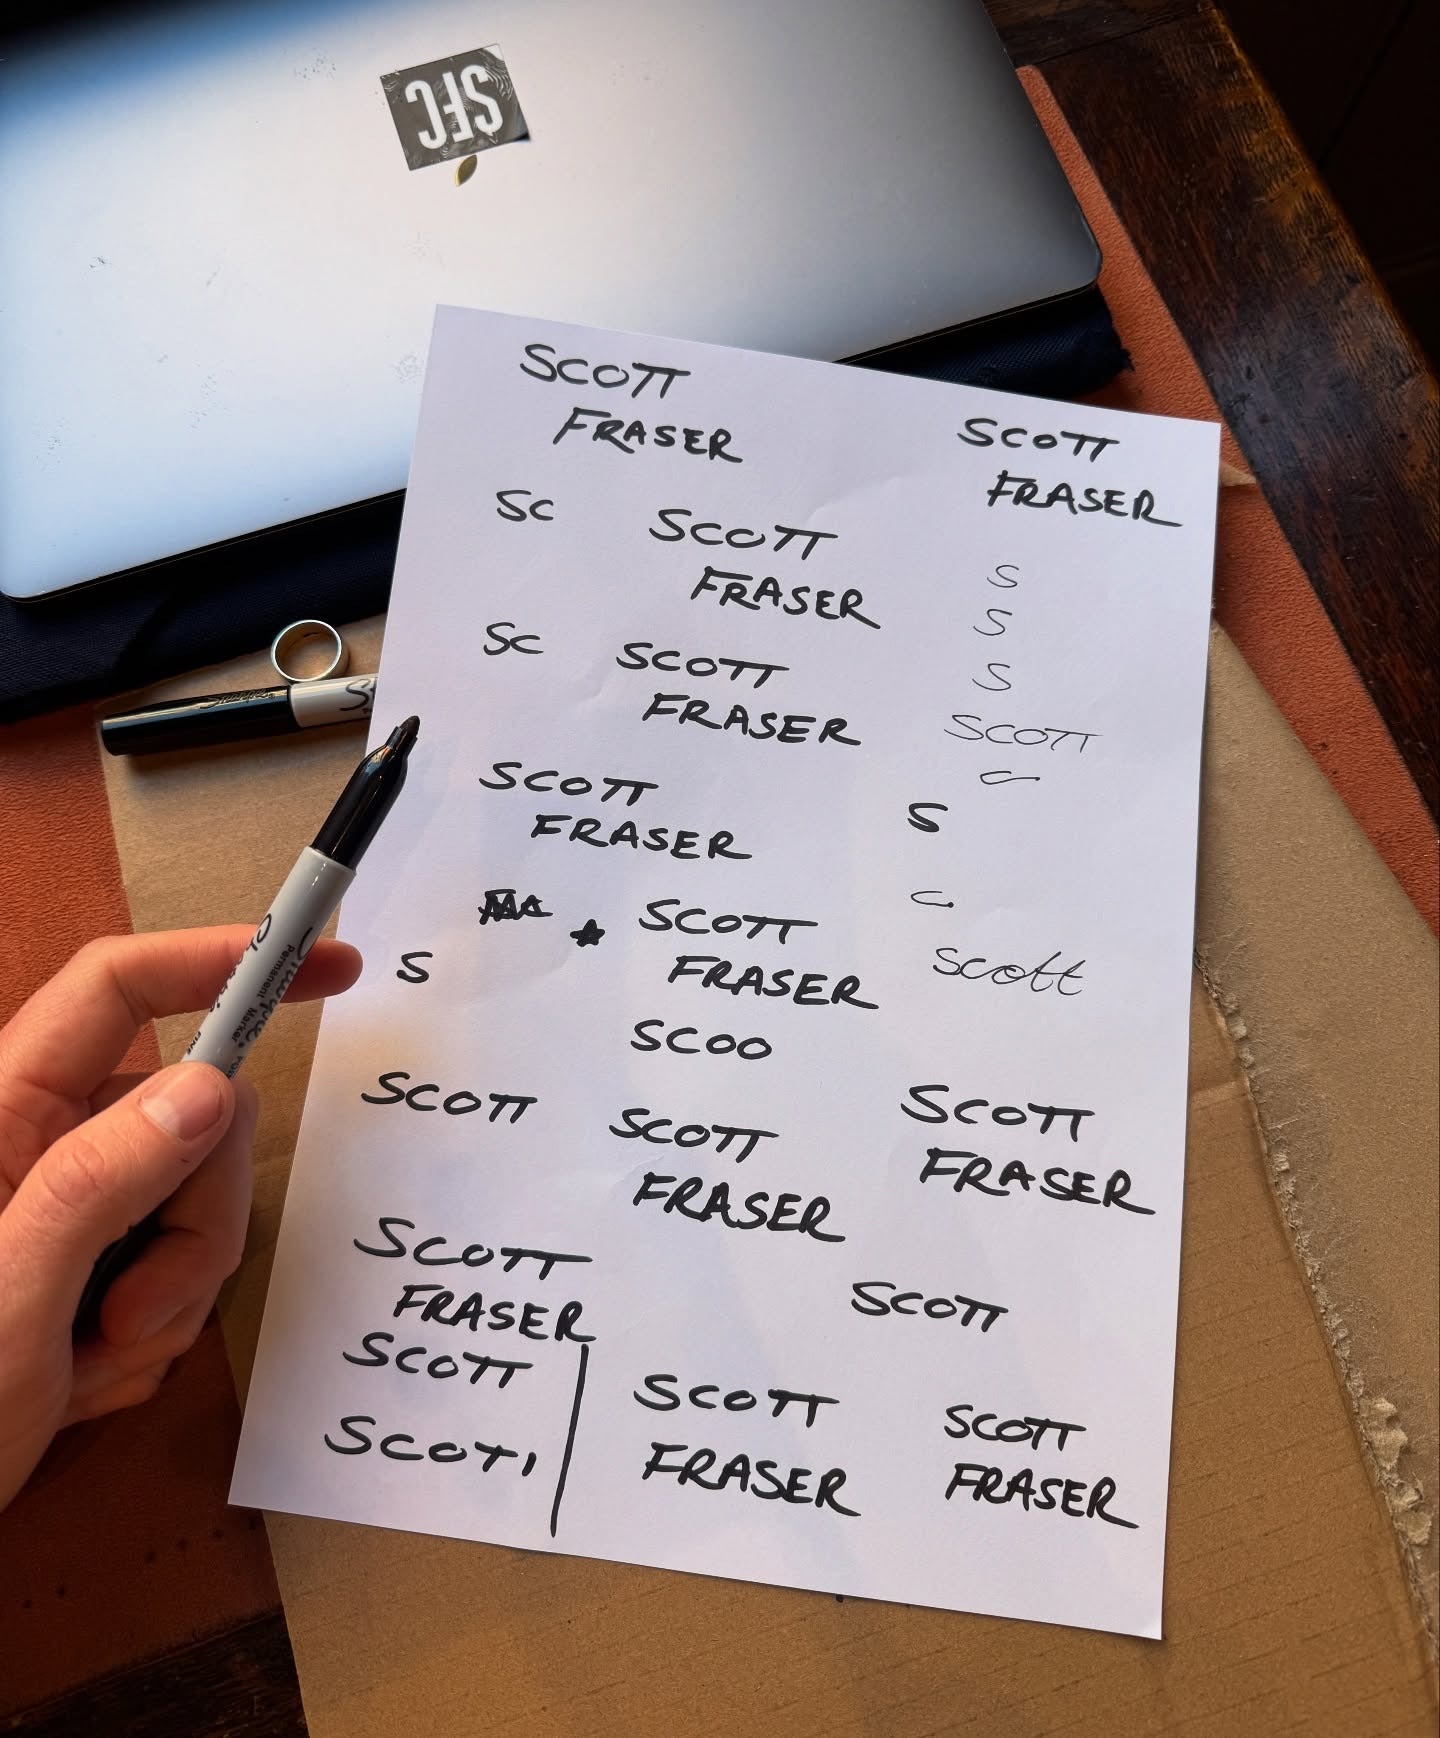 SFC
SCOTT
FRASER
SCOTT
FRASER
SC
SCOTT
FRASER
S
S
SC
SCOTT
FRASER
S
SCOTT
SCOTT
FRASER
S
SCOTT
FRASER
Scott
S
SCOO
SCOTT
SCOTT
FRASER
SCOTT
FRASER
SCOTT
FRASER
SCOTT
SCOTT
SCOTI
SCOTT
FRASER
SCOTT
FRASER
Sharpie
Sharpie.
Permanent Marker
FINE